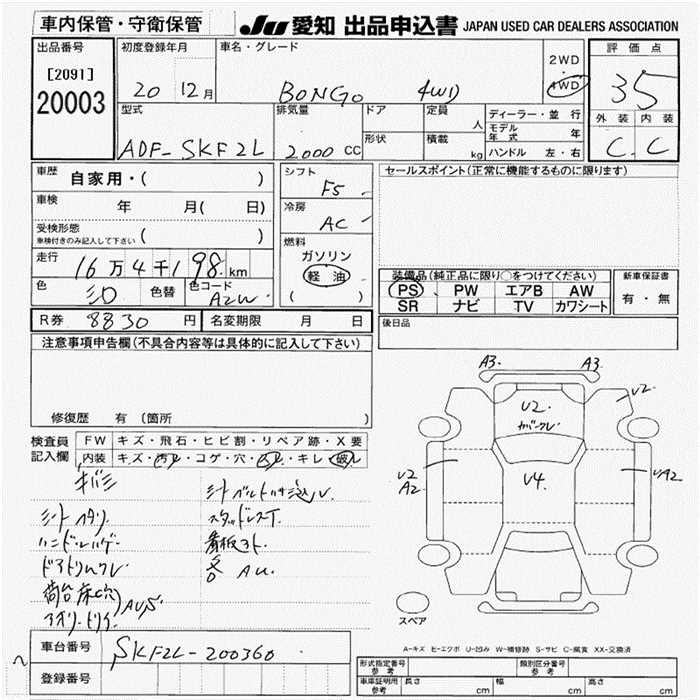 車内保管・守衛保管
JU 愛知 出品申込書 JAPAN USED CAR DEALERS ASSOCIATION
出品番号
[2091]
20003
初度登録年月
20 12月
車名・グレード
BONGO 4WD
2WD
・
4WD
評価点
35
外装 内装
C C
型式
ADF-SKF2L
排気量
2000 CC
ドア
形状
定員
人
積載
kg
ディーラー・並行
モデル年式 年
ハンドル 左・右
車歴 自家用・( )
車検 年 月( 日)
受検形態
車検付きのみ記入して下さい ( )
走行 16万4千198km
色 シロ 色替 色コード A2W
シフト
F5
冷房
AC
燃料
ガソリン
軽油
( )
セールスポイント(正常に機能するものに限ります)
装備品(純正品に限り○をつけてください)
PS PW エアB AW
SR ナビ TV カワシート
新車保証書
有・無
R券 8830 円 名変期限 月 日
後日品
注意事項申告欄(不具合内容等は具体的に記入して下さい)
修復歴 有 (箇所 )
検査員記入欄
FW キズ・飛石・ヒビ割・リペア跡・X要
内装 キズ・汚レ・コゲ・穴・スレ・キレ・破レ
シートベルト
シート
ハンドル
スタッドレス
看板コト
各 AU
荷台
AUS
A3 A3
U2
U2
U4
U2
A2
UA2
スペア
A-キズ E-エクボ U-凹み W-補修跡 S-サビ C-腐食 XX-交換済
車台番号 SKF2L-200360
登録番号
形式指定番号 参考
類別区分番号 参考
車庫証明用 参考 長さ cm 幅 cm 高さ cm